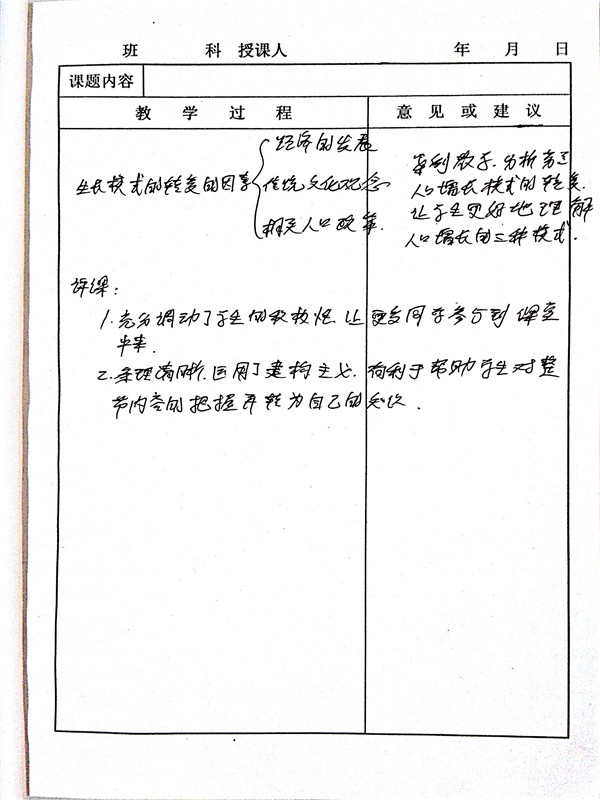 班 科 授课人 年 月 日
课题内容
教 学 过 程 意 见 或 建 议
经济的发展
生长模式的转变的因素 传统文化观念
相关人口政策.
案例教学.分析
人口增长模式的转变.
让学生更好地理解
人口增长的三种模式.
评课:
1.充分调动了学生的积极性.让更多同学参与到课堂
中来.
2.条理清晰.运用了建构主义.有利于帮助学生对整
节内容的把握并转为自己的知识.